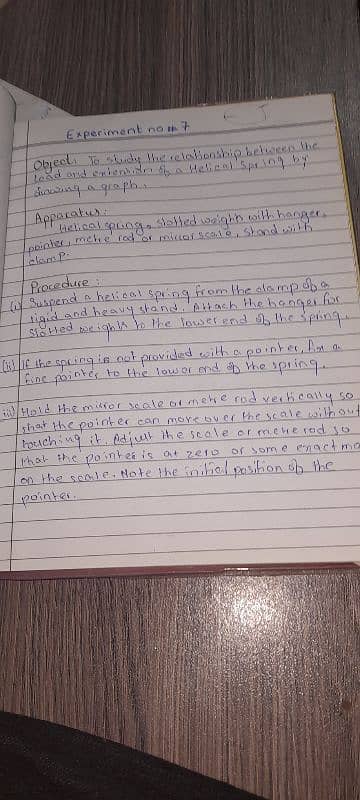 Experiment no 7
Object: To study the relationship between the
load and extension of a Helical Spring by
drawing a graph.
Apparatus:
Helical spring, slotted weight with hanger,
pointer, metre rod or mirror scale, stand with
clamp.
Procedure:
(i) Suspend a helical spring from the clamp of a
rigid and heavy stand. Attach the hanger for
slotted weights to the lower end of the spring.
(ii) If the spring is not provided with a pointer, fix a
fine pointer to the lower end of the spring.
iii) Hold the mirror scale or metre rod vertically so
that the pointer can move over the scale without
touching it. Adjust the scale or metre rod so
that the pointer is at zero or some exact ma
on the scale. Note the initial position of the
pointer.